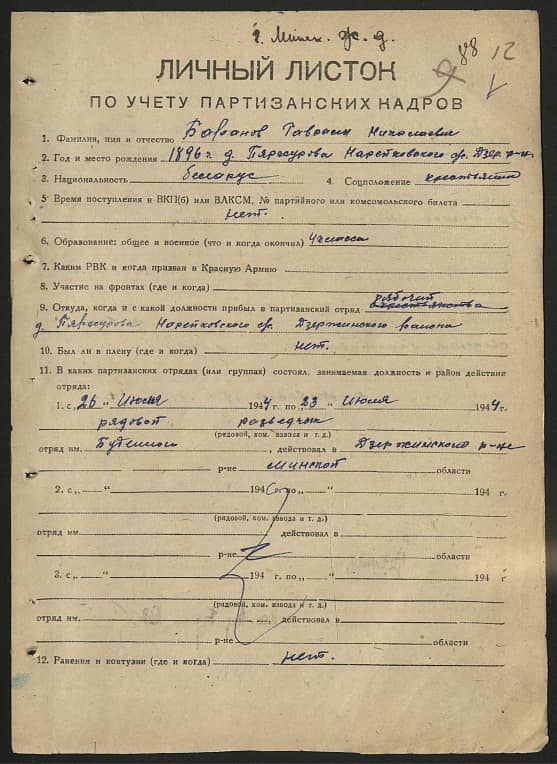 г. Минск. ж. д.
88 12
ЛИЧНЫЙ ЛИСТОК
ПО УЧЕТУ ПАРТИЗАНСКИХ КАДРОВ
1. Фамилия, имя и отчество Николаевич
2. Год и место рождения 1896 г. д. Дзер. р-н
3. Национальность беларус 4. Соцположение
5. Время поступления в ВКП(б) или ВЛКСМ, № партийного или комсомольского билета
нет.
6. Образование: общее и военное (что и когда окончил) 4 класса
7. Каким РВК и когда призван в Красную Армию
8. Участие на фронтах (где и когда)
рабочий
9. Откуда, когда и с какой должности прибыл в партизанский отряд
д. Дзержинского района
10. Был ли в плену (где и когда) нет.
11. В каких партизанских отрядах (или группах) состоял, занимаемая должность и район действия
отряда:
1. с „26 " Июня 1944 г. по „23 " Июля 1944 г.
рядовой разведчик
(рядовой, ком. взвода и т. д.)
отряд им. Буденного , действовал в Дзержинского р-не
р-не Минской области
2. с „ " 194 г. по „ " 194 г.
(рядовой, ком. взвода и т. д.)
отряд им. действовал в
р-не области
3. с „ " 194 г. по „ " 194 г
(рядовой, ком. взвода и т. д.)
отряд им. , действовал в
р-не области
12. Ранения и контузии (где и когда) нет.